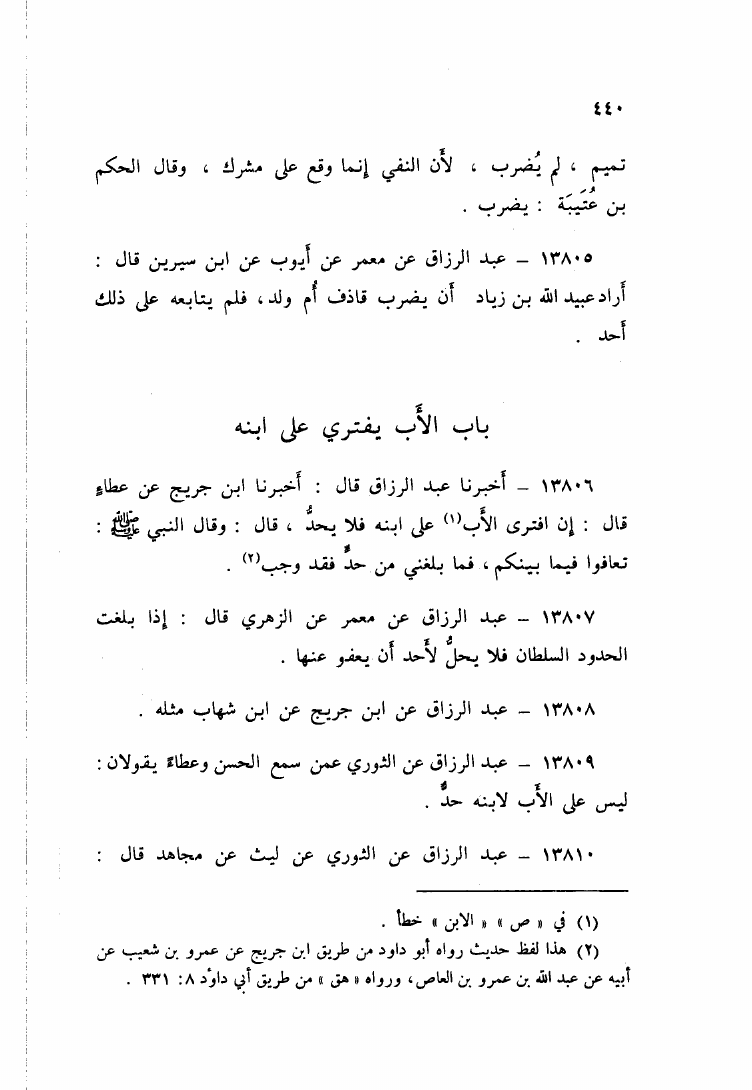 ٤٤٠
تميم ، لم يُضرب ، لأَن النفي إنما وقع على مشرك ، وقال الحكم
بن عُتَيبَة : يضرب .
١٣٨٠٥ – عبد الرزاق عن معمر عن أَيوب عن ابن سيرين قال :
أَراد عبيد الله بن زياد أَن يضرب قاذف أُم ولد، فلم يتابعه على ذلك
أَحد .
باب الأَب يفتري على ابنه
١٣٨٠٦ – أَخبرنا عبد الرزاق قال : أَخبرنا ابن جريج عن عطاءٍ
قال : إن افترى الأَب(١) على ابنه فلا يحدُّ ، قال : وقال النبي ﷺ :
تعافوا فيما بينكم ، فما بلغني من حدٍّ فقد وجب(٢) .
١٣٨٠٧ – عبد الرزاق عن معمر عن الزهري قال : إذا بلغت
الحدود السلطان فلا يحلُّ لأَحد أَن يعفو عنها .
١٣٨٠٨ – عبد الرزاق عن ابن جريج عن ابن شهاب مثله .
١٣٨٠٩ – عبد الرزاق عن الثوري عمن سمع الحسن وعطاءً يقولان :
ليس على الأَب لابنه حدٌّ .
١٣٨١٠ – عبد الرزاق عن الثوري عن ليث عن مجاهد قال :
(١) في « ص » « الابن » خطأ .
(٢) هذا لفظ حديث رواه أبو داود من طريق ابن جريج عن عمرو بن شعيب عن
أبيه عن عبد الله بن عمرو بن العاص، ورواه « هق » من طريق أبي داوٗد ٨: ٣٣١ .